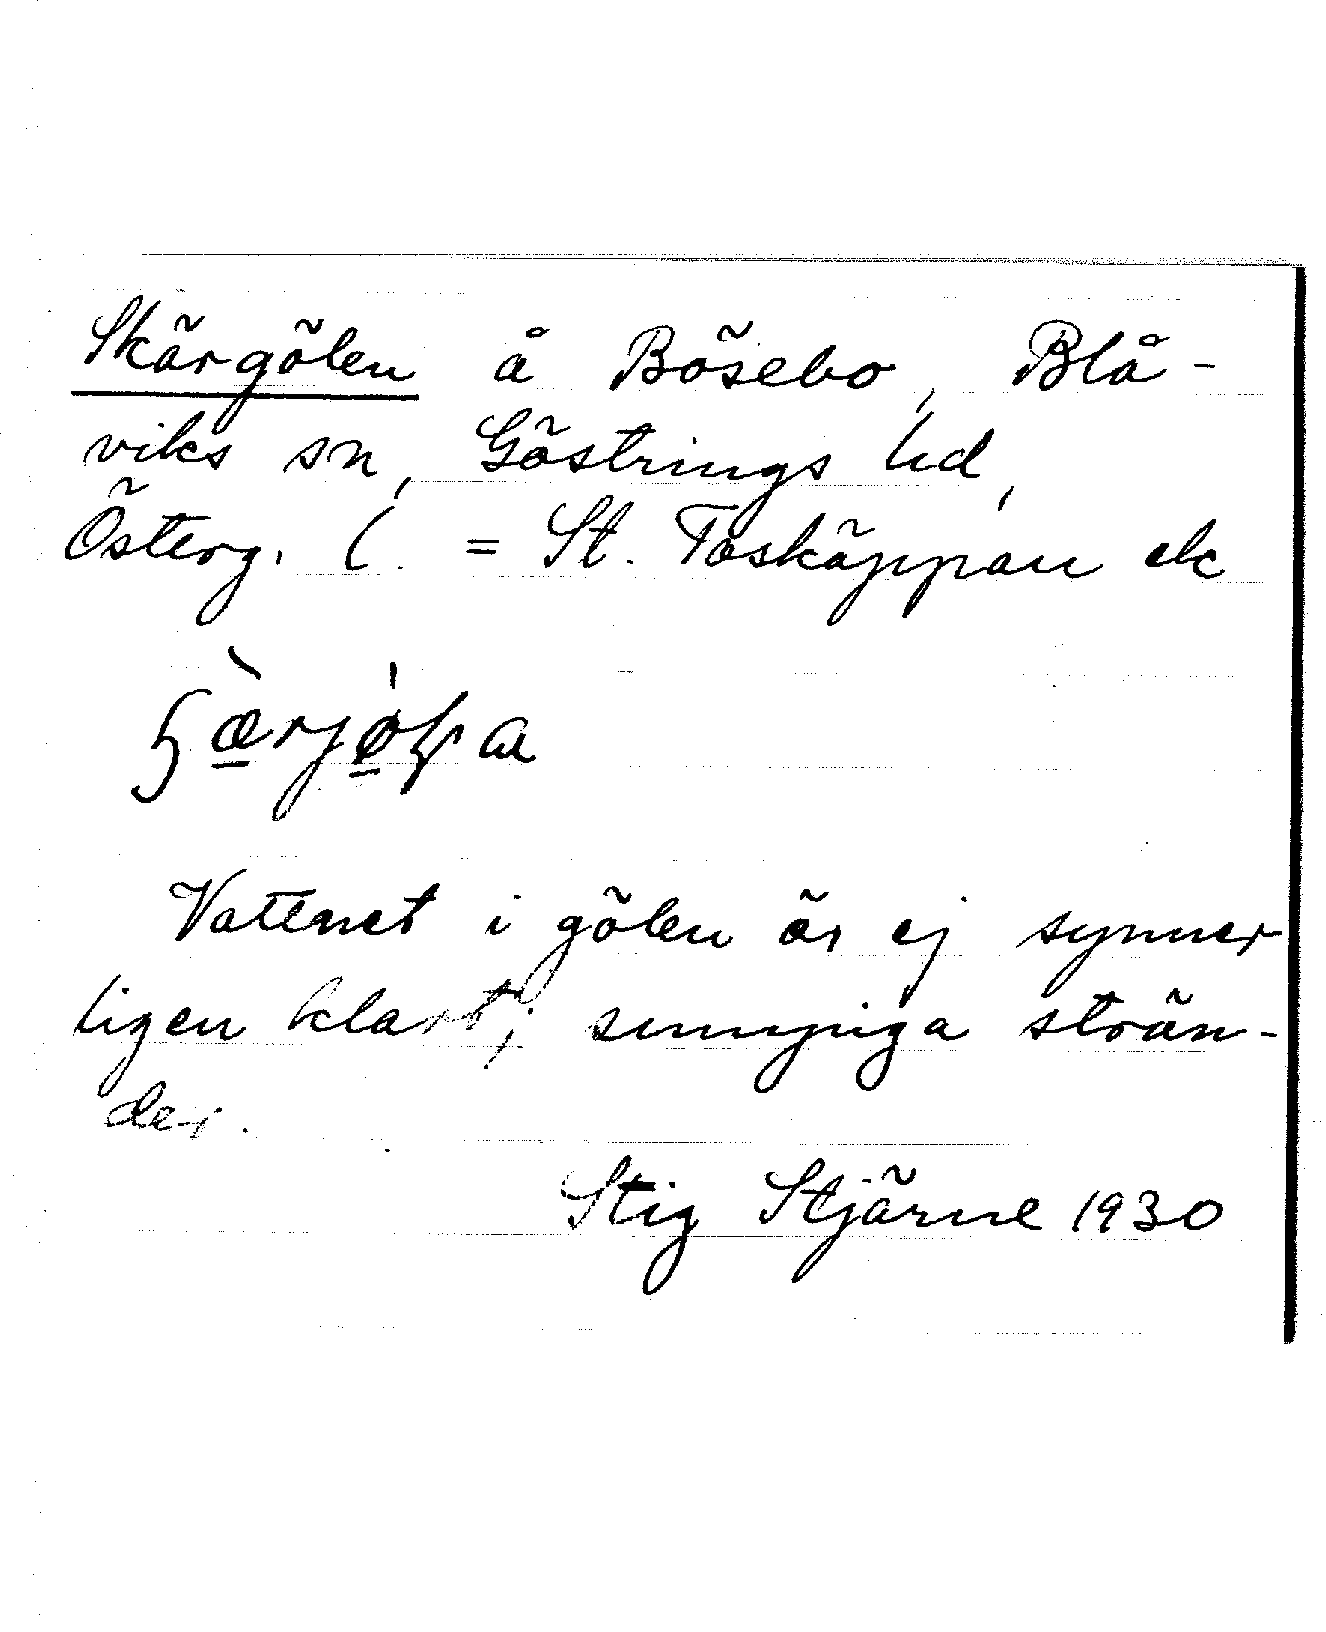 Skärgölen å Bösebo, Blå-
viks sn, Göstrings hd,
Österg. ( = St. Toskäppan ek
Vattnet i gölen är ej synner
ligen klart; sumpiga strän-
der.
Stig Stjärne 1930